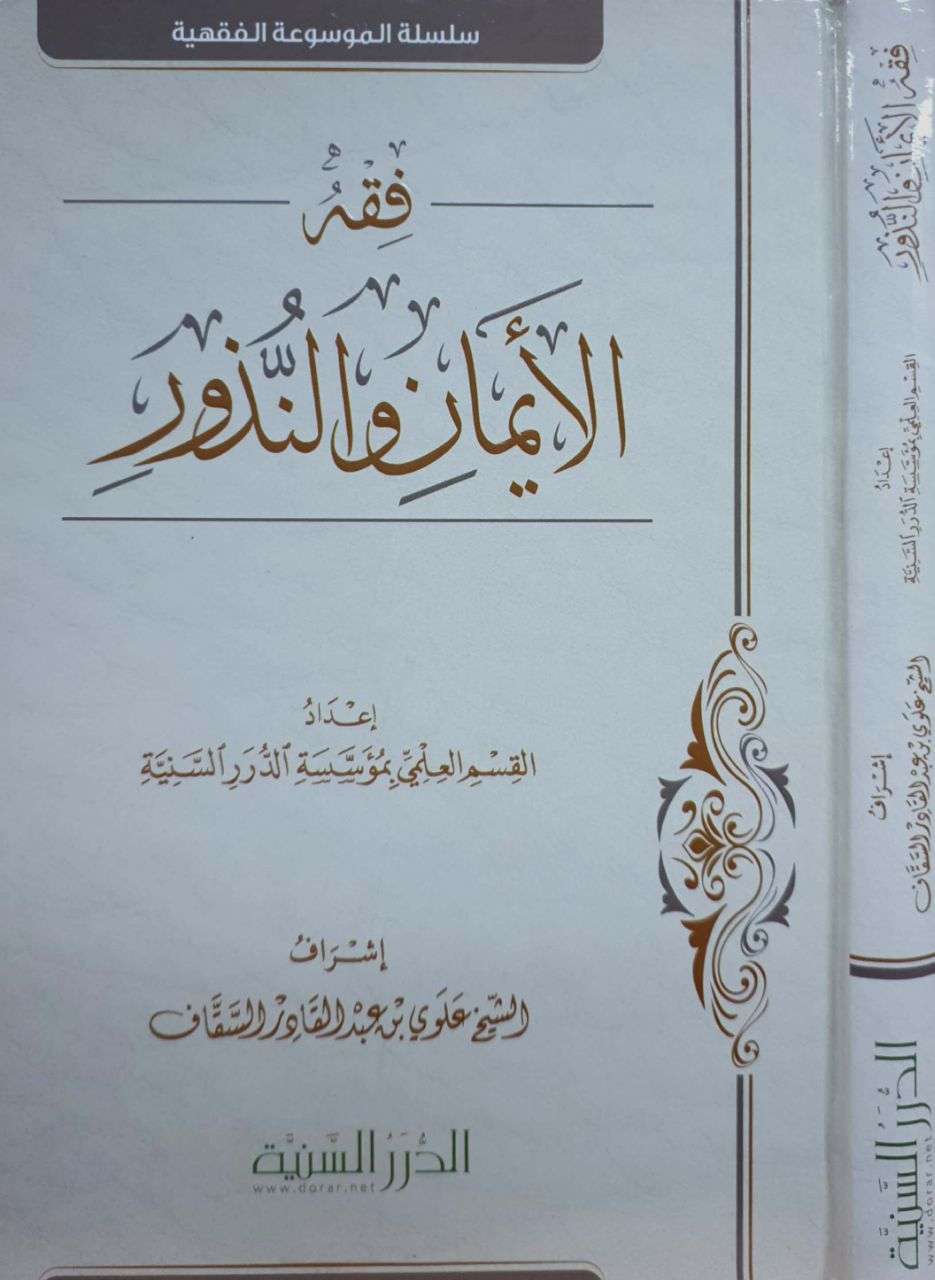 سلسلة الموسوعة الفقهية
فِقْهُ
الأَيْمَانِ وَالنُّذُورِ
إِعْدَادُ
القِسْمِ العِلْمِيِّ بِمُؤَسَّسَةِ الدُّرَرِ السَّنِيَّةِ
إِشْرَافُ
الشَّيْخِ عَلَوِي بْنِ عَبْدِ القَادِرِ السَّقَّافِ
الدُّرَرُ السَّنِيَّة
www.dorar.net
فِقْهُ الأَيْمَانِ وَالنُّذُورِ
إِعْدَادُ
القِسْمِ العِلْمِيِّ بِمُؤَسَّسَةِ الدُّرَرِ السَّنِيَّةِ
إِشْرَافُ
الشَّيْخِ عَلَوِي بْنِ عَبْدِ القَادِرِ السَّقَّافِ
الدُّرَرُ السَّنِيَّة
www.dorar.net